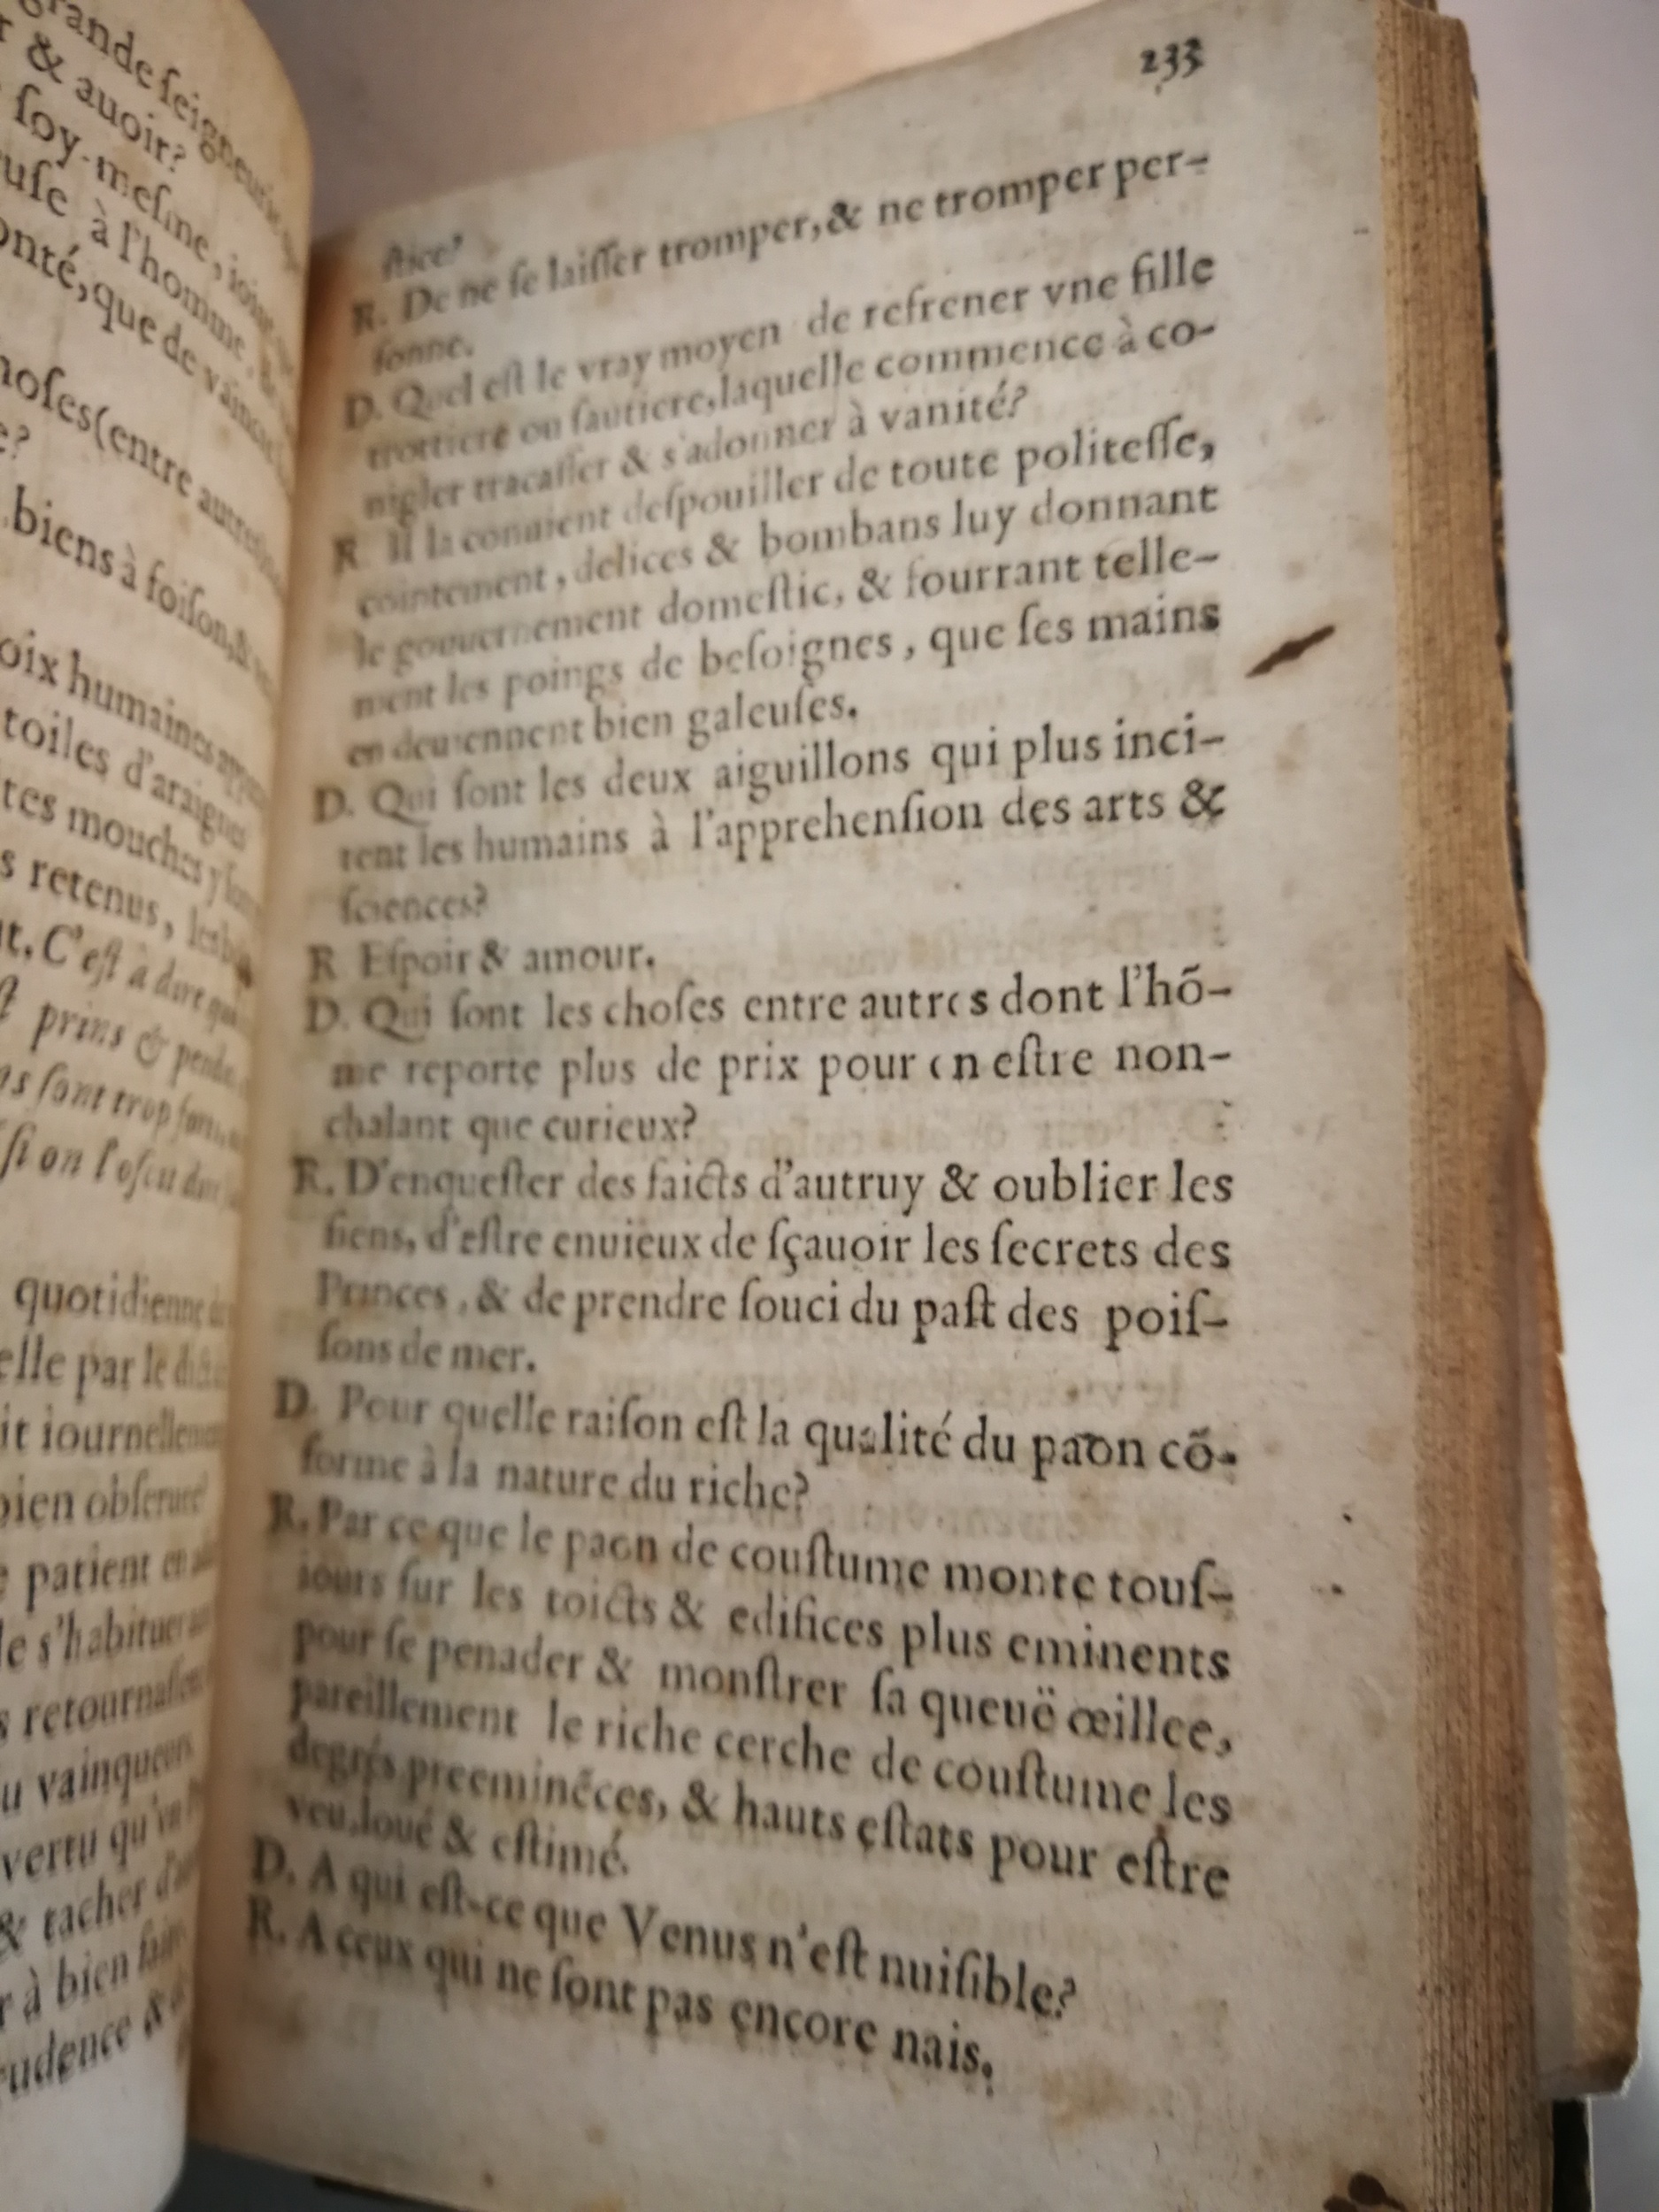 grande seigneurie
& auoir?
soy-mesme, ioint
use à l'homme, &
onté, que de vaincre
hoses (entre autres
e?
biens à foison, &
oix humaines
toiles d'araignes
tes mouches y sont
s retenus, les
ut. C'est à dire que
st prins & pendu
ns sont trop
si on l'oseu dire
quotidienne de
elle par le
it iournellement
bien obseruer
e patient en
le s'habituer
s retournassent
u vainqueurs
vertu qu'vn
& tacher d'
r à bien faire
rudence &
233
stice?
R. De ne se laisser tromper, & ne tromper per-
sonne.
D. Quel est le vray moyen de refrener vne fille
trottiere ou sautiere, laquelle commence à co-
nigler tracasser & s'adonner à vanité?
R Il la conuient despouiller de toute politesse,
cointement, delices & bombans luy donnant
le gouuernement domestic, & fourrant telle-
ment les poings de besoignes, que ses mains
en deuiennent bien galeuses.
D. Qui sont les deux aiguillons qui plus inci-
tent les humains à l'apprehension des arts &
sciences?
R Espoir & amour.
D. Qui sont les choses entre autres dont l'hõ-
me reporte plus de prix pour en estre non-
chalant que curieux?
R. D'enquester des faicts d'autruy & oublier les
siens, d'estre enuieux de sçauoir les secrets des
Princes, & de prendre souci du past des pois-
sons de mer.
D. Pour quelle raison est la qualité du paon cõ-
forme à la nature du riche?
R. Par ce que le paon de coustume monte tous-
iours sur les toicts & edifices plus eminents
pour se penader & monstrer sa queuë œillee,
pareillement le riche cerche de coustume les
degrés preeminẽces, & hauts estats pour estre
veu, loué & estimé.
D. A qui est-ce que Venus n'est nuisible?
R. A ceux qui ne sont pas encore nais.